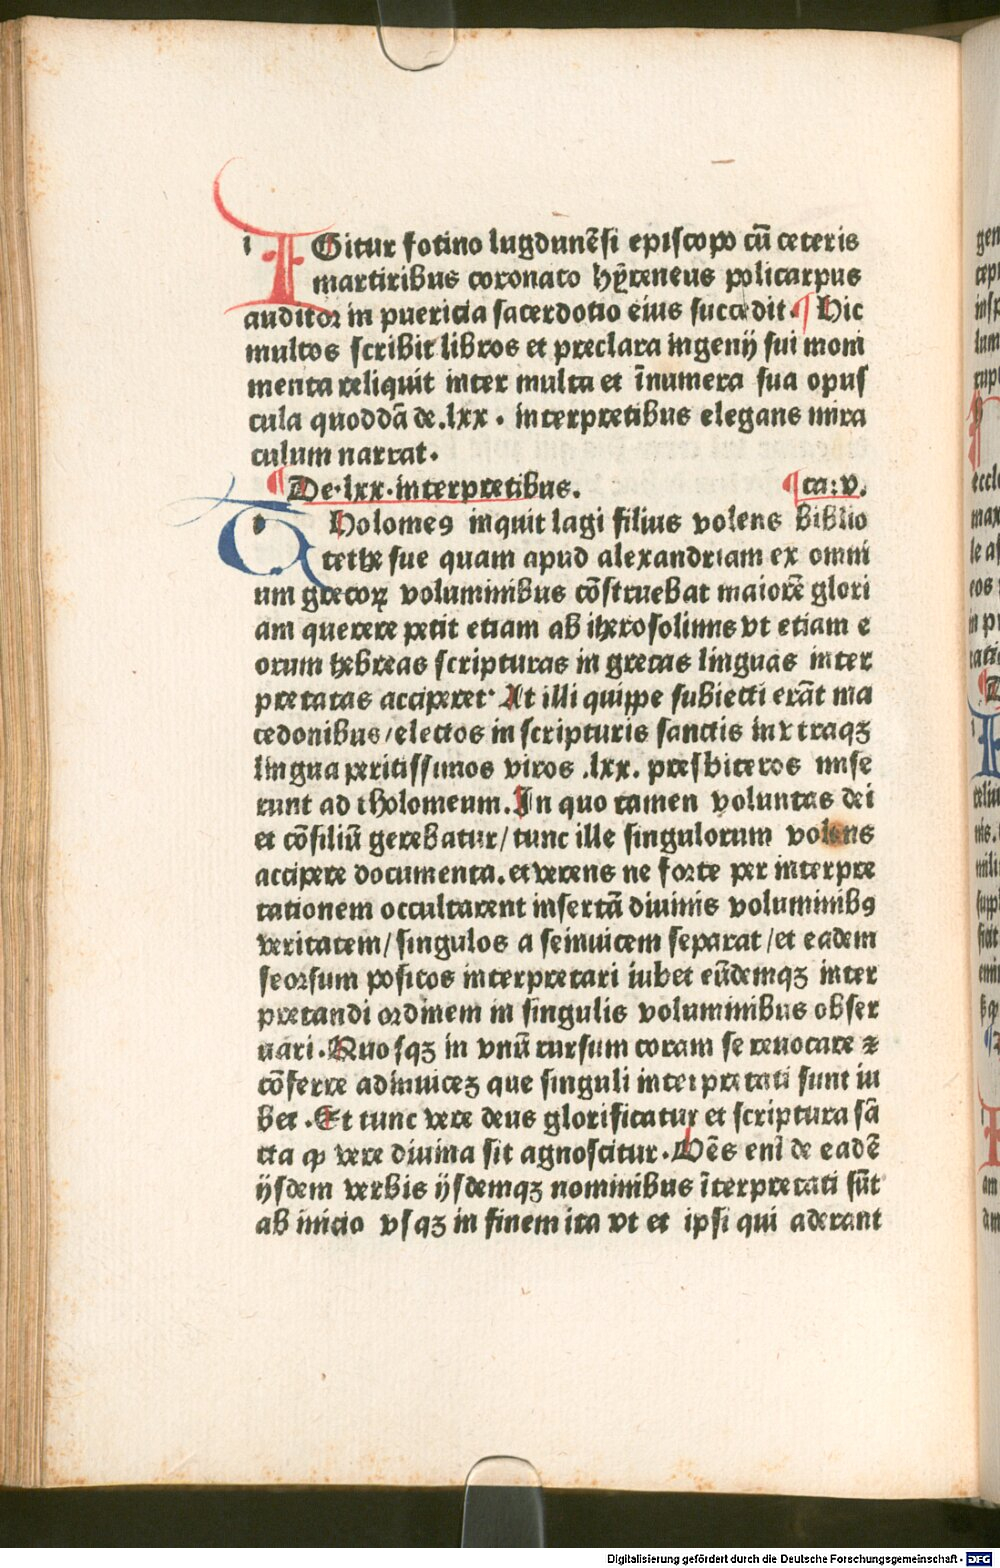 IGitur fotino lugdunēsi episcopo cū ceteris
martiribus coronato hẏreneus policarpus
auditor in puericia sacerdotio eius succedit. ¶ Hic
multos scribit libros et preclara ingenij sui moni
menta reliquit inter multa et īnumera sua opus
cula quoddā de .lxx. interpretibus elegans mira
culum narrat.
¶ De .lxx. interpretibus. ¶ ca: v.
Tholomeꝰ inquit lagi filius volens biblio
tethe sue quam apud alexandriam ex omni
um grecoꝝ voluminibus cōstruebat maiorē glori
am querere petit etiam ab iherosolimis vt etiam e
orum hebreas scripturas in grecas linguas inter
pretatas acciperet. At illi quippe subiecti erāt ma
cedonibus/electos in scripturis sanctis in vtraqꝫ
lingua peritissimos viros .lxx. presbiteros mise
runt ad tholomeum. In quo tamen voluntas dei
et cōsiliū gerebatur/tunc ille singulorum volens
accipere documenta. et verens ne forte per interpre
tationem occultarent insertā diuinis voluminibꝰ
veritatem/singulos a seinuicem separat/et eadem
seorsum positos interpretari iubet eūdemqꝫ inter
pretandi ordinem in singulis voluminibus obser
uari. Quosqꝫ in vnū rursum coram se reuocare ⁊
cōferre adinuiceꝫ que singuli interpretati sunt iu
bet. Et tunc vere deus glorificatur et scriptura sā
cta ꝙ vere diuina sit agnoscitur. Oēs enī de eadē
ijsdem verbis ijsdemqꝫ nominibus īterpretati sūt
ab inicio vsqꝫ in finem ita vt et ipsi qui aderant
Digitalisierung gefördert durch die Deutsche Forschungsgemeinschaft - DFG